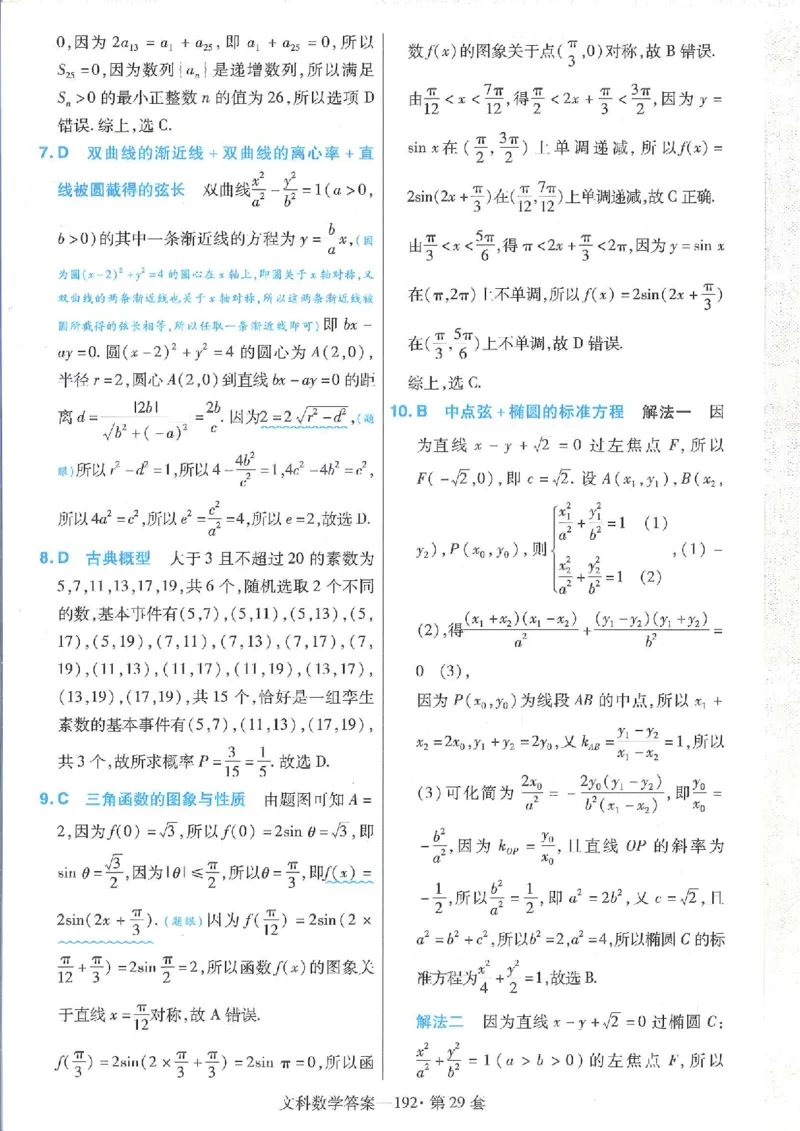 0,因为 2a₁₃ = a₁ + a₂₅, 即 a₁ + a₂₅ = 0, 所以
S₂₅ = 0,因为数列{aₙ}是递增数列,所以满足
Sₙ > 0 的最小正整数 n 的值为 26,所以选项 D
错误. 综上,选 C.
7. D 双曲线的渐近线 + 双曲线的离心率 + 直
线被圆截得的弦长 双曲线 x²/a² - y²/b² = 1(a > 0,
b > 0)的其中一条渐近线的方程为 y = b/a x,(因
为圆(x-2)² + y² = 4 的圆心在 x 轴上,即圆关于 x 轴对称,又
双曲线的两条渐近线也关于 x 轴对称,所以这两条渐近线被
圆所截得的弦长相等,所以任取一条渐近线即可)即 bx -
ay = 0. 圆(x-2)² + y² = 4 的圆心为 A(2,0),
半径 r = 2,圆心 A(2,0)到直线 bx - ay = 0 的距
离 d = |2b|/√(b² + (-a)²) = 2b/c. 因为2 = 2√(r² - d²),(题
眼)所以 r² - d² = 1,所以 4 - 4b²/c² = 1,4c² - 4b² = c²,
所以 4a² = c²,所以 e² = c²/a² = 4,所以 e = 2,故选 D.
8. D 古典概型 大于 3 且不超过 20 的素数为
5,7,11,13,17,19,共 6 个,随机选取 2 个不同
的数,基本事件有(5,7),(5,11),(5,13),(5,
17),(5,19),(7,11),(7,13),(7,17),(7,
19),(11,13),(11,17),(11,19),(13,17),
(13,19),(17,19),共 15 个,恰好是一组孪生
素数的基本事件有(5,7),(11,13),(17,19),
共 3 个,故所求概率 P = 3/15 = 1/5. 故选 D.
9. C 三角函数的图象与性质 由题图可知 A =
2,因为 f(0) = √3,所以 f(0) = 2sin θ = √3,即
sin θ = √3/2,因为|θ| ≤ π/2,所以θ = π/3,即f(x) =
2sin(2x + π/3). (题眼) 因为 f(π/12) = 2sin(2 ×
π/12 + π/3) = 2sin π/2 = 2,所以函数 f(x)的图象关
于直线 x = π/12 对称,故 A 错误.
f(π/3) = 2sin(2 × π/3 + π/3) = 2sin π = 0,所以函
数 f(x)的图象关于点(π/3,0)对称,故 B 错误.
由 π/12 < x < 7π/12,得 π/2 < 2x + π/3 < 3π/2,因为 y =
sin x 在(π/2, 3π/2)上单调递减,所以 f(x) =
2sin(2x + π/3)在(π/12, 7π/12)上单调递减,故 C 正确.
由 π/3 < x < 5π/6,得 π < 2x + π/3 < 2π,因为 y = sin x
在(π,2π)上不单调,所以 f(x) = 2sin(2x + π/3)
在(π/3, 5π/6)上不单调,故 D 错误.
综上,选 C.
10. B 中点弦 + 椭圆的标准方程 解法一 因
为直线 x - y + √2 = 0 过左焦点 F,所以
F(-√2,0),即 c = √2. 设 A(x₁,y₁),B(x₂,
y₂),P(x₀,y₀),则{x₁²/a² + y₁²/b² = 1 (1) x₂²/a² + y₂²/b² = 1 (2),(1) -
(2),得 (x₁ + x₂)(x₁ - x₂)/a² + (y₁ - y₂)(y₁ + y₂)/b² =
0 (3),
因为 P(x₀,y₀)为线段 AB 的中点,所以 x₁ +
x₂ = 2x₀,y₁ + y₂ = 2y₀,又 k_AB = (y₁ - y₂)/(x₁ - x₂) = 1,所以
(3)可化简为 2x₀/a² = - 2y₀(y₁ - y₂)/b²(x₁ - x₂),即 y₀/x₀ =
- b²/a²,因为 k_OP = y₀/x₀,且直线 OP 的斜率为
- 1/2,所以 b²/a² = 1/2,即 a² = 2b²,又 c = √2,且
a² = b² + c²,所以b² = 2,a² = 4,所以椭圆 C 的标
准方程为 x²/4 + y²/2 = 1,故选 B.
解法二 因为直线 x - y + √2 = 0 过椭圆 C:
x²/a² + y²/b² = 1(a > b > 0)的左焦点 F,所以
文科数学答案—192·第 29 套